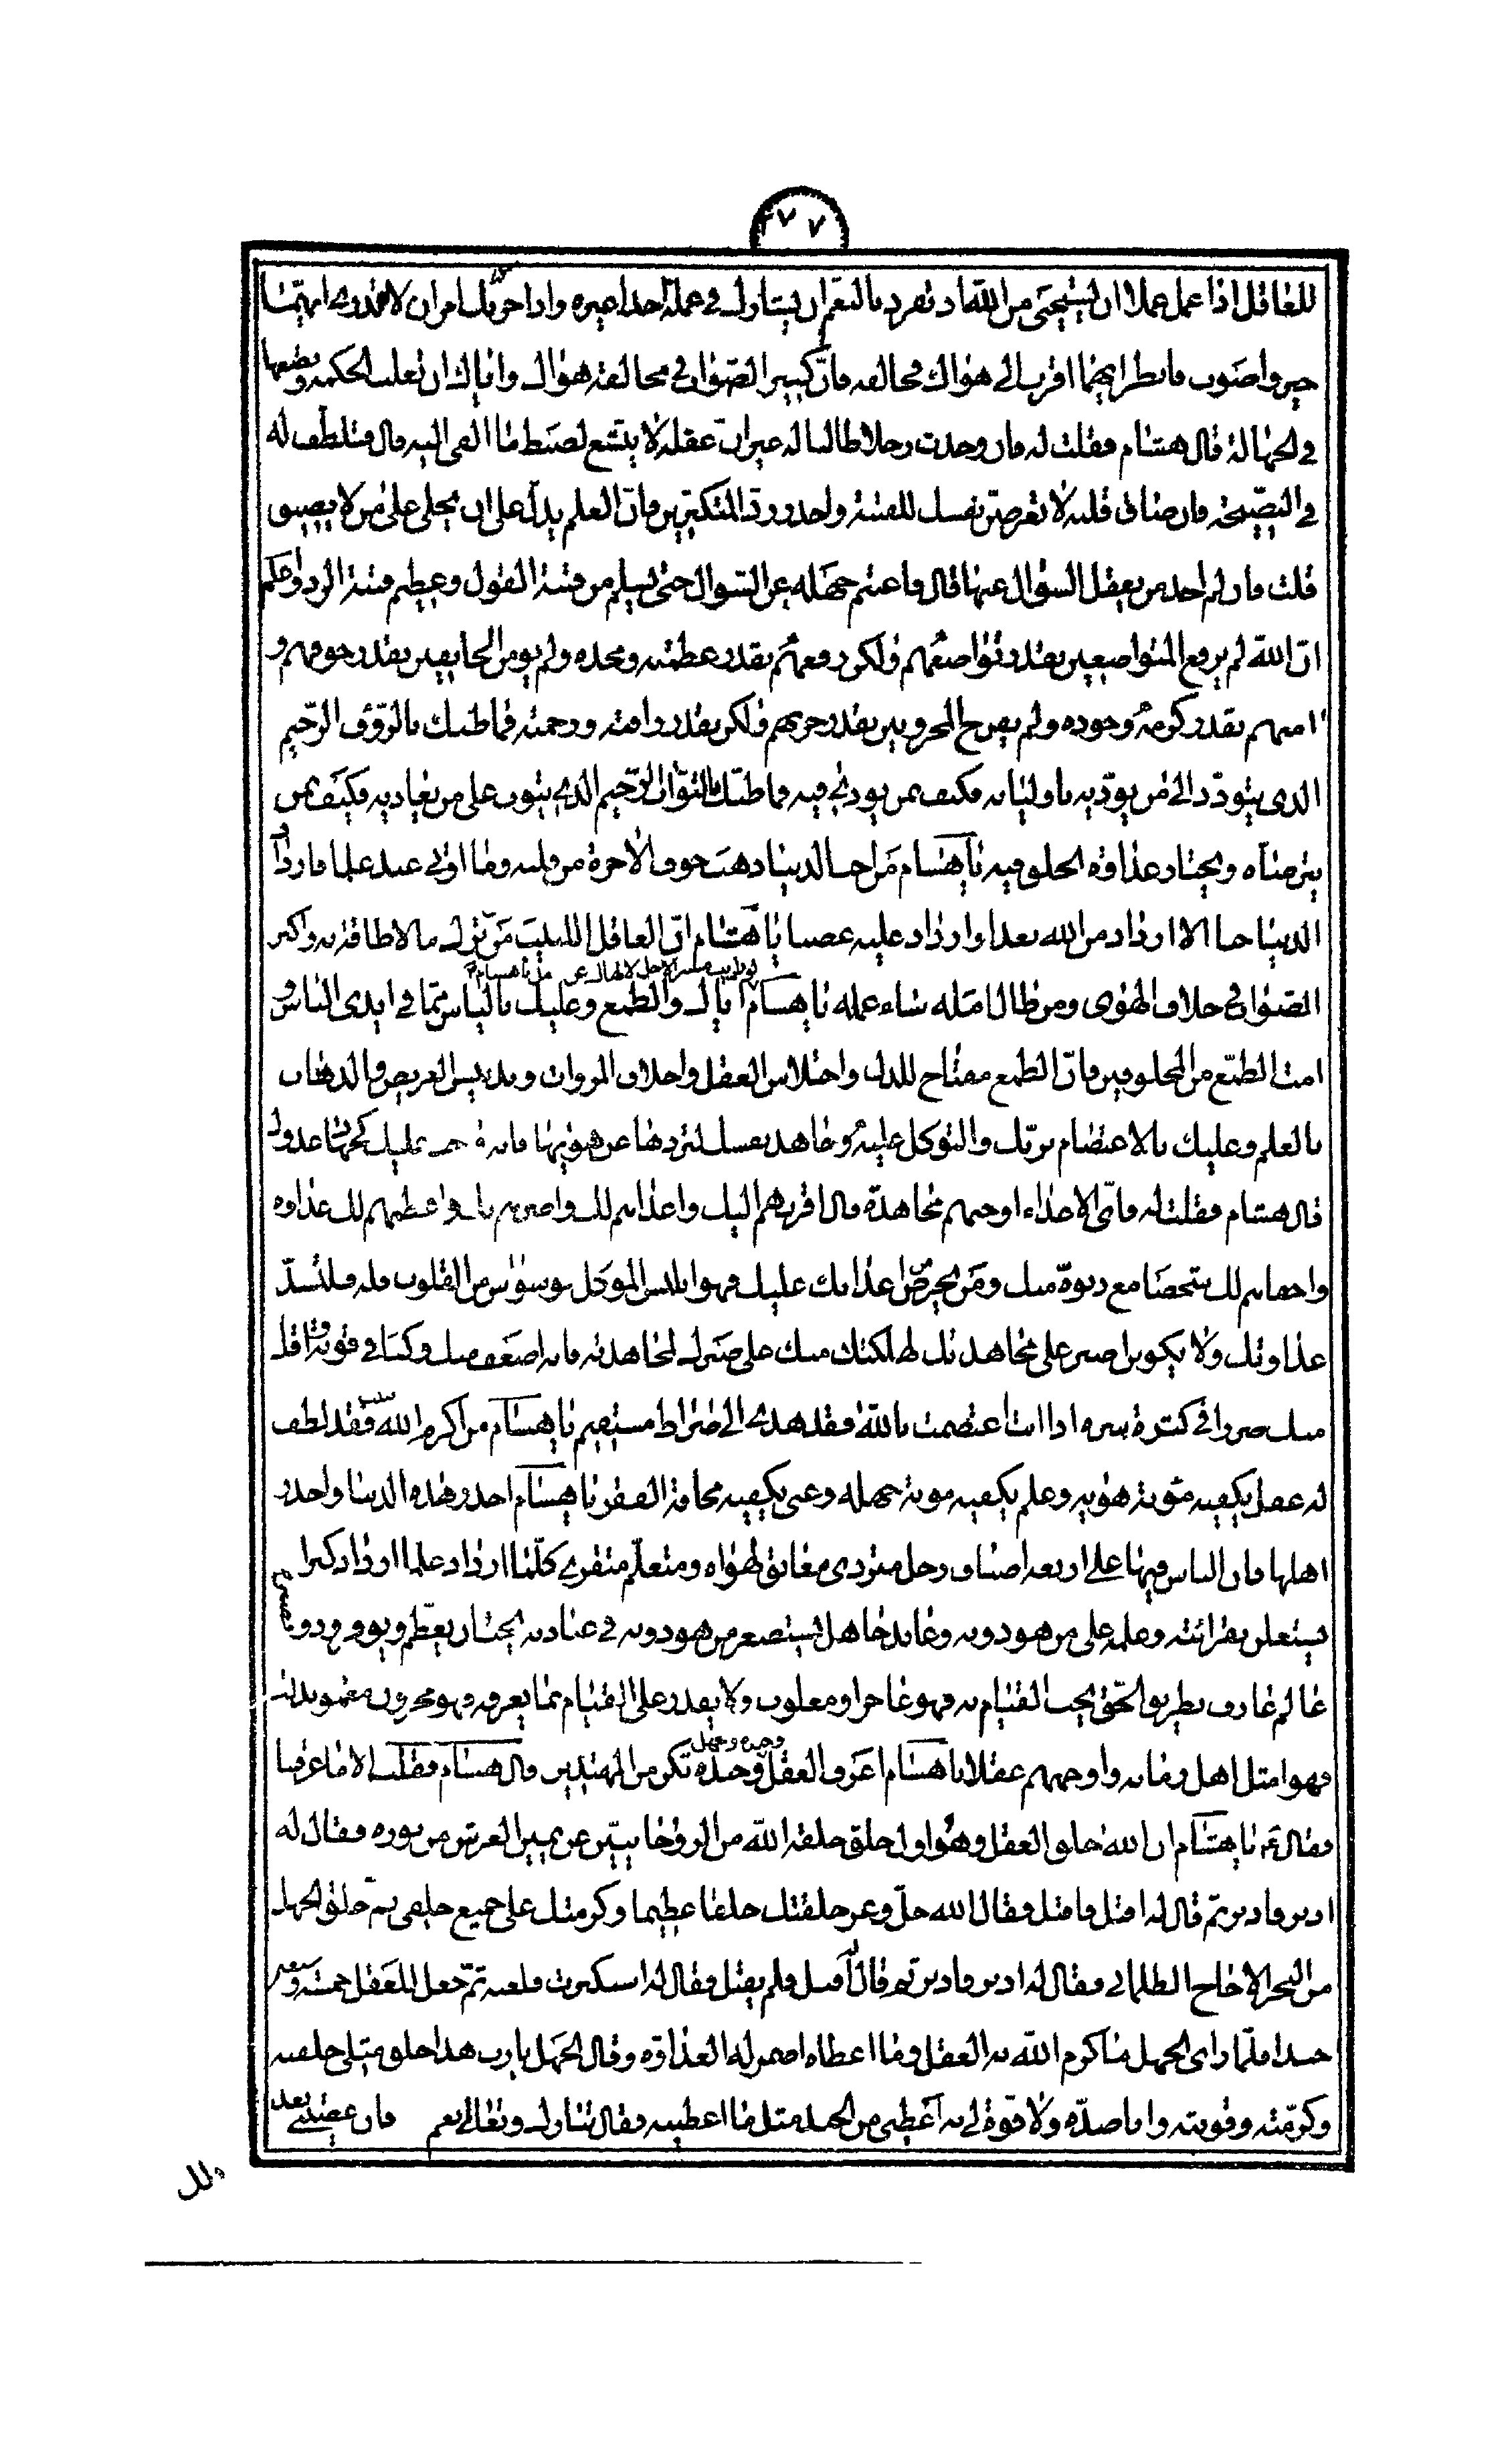 ٢٧٧
للعاقل اذا عمل عملا ان يستحيى من الله اذ تفرد بالنعم ان يشارك في عمله احدا غيره واذا حزبك امران لا تدرى ايهما
خير واصوب فانظر ايهما اقرب الى هواك فخالفه فان كبير الصواب في مخالفة هواك واياك ان تغلب الحكمة وتضعها
في الجهالة قال هشام فقلت له فان وجدت رجلا طالبا له غير ان عقله لا يتسع لضبط ما القى اليه قال فتلطف له
في النصيحة فان ضاق قلبه لا تعرضن نفسك للفتنة واحذر رد المتكبرين فان العلم يدل على ان يجلى على من لا يفيق
قلت فان لم اجد من يعقل السؤال عنها قال فاغتنم جهله عن السؤال حتى تسلم من فتنة القول وعظيم فتنة الرد واعلم
ان الله لم يرفع المتواضعين بقدر تواضعهم ولكن رفعهم بقدر عظمته ومجده ولم يؤمن الخايفين بقدر خوفهم و
امنهم بقدر كرمه وجوده ولم يفرح المحزونين بقدر حزنهم ولكن بقدر رافته ورحمته فما ظنك بالرؤف الرحيم
الذى يتودد الى من يؤذيه باوليائه فكيف بمن يوذى فيه وما ظنك بالتواب الرحيم الذى يتوب على من يعاديه فكيف بمن
يترضاه ويختار عداوة الخلق فيه يا هشام من احب الدنيا ذهب خوف الاخرة من قلبه وما اوتى عبد علما فازداد
الدنيا حبا الا ازداد من الله بعدا وازداد عليه غضبا يا هشام ان العاقل اللبيب من ترك ما لا طاقة به واكثر
الصواب في خلاف الهوى ومن طال امله ساء عمله يا هشام اياك والطمع وعليك بالياس مما في ايدى الناس و
امت الطمع من المخلوقين فان الطمع مفتاح للذل واختلاس العقل واخلاق المروات وتدنيس العرض والذهاب
بالعلم وعليك بالاعتصام بربك والتوكل عليه وجاهد نفسك لتردها عن هويها فانه واجب عليك كجهاد عدوك
قال هشام فقلت له فاى الاعداء اوجبهم مجاهدة قال اقربهم اليك واعداهم لك واضرهم بك واعظمهم لك عداوة
واخفاهم لك شخصا مع دنوه منك ومن يحرض اعدائك عليك وهو ابليس الموكل بوسواس من القلوب فله فلتشد
عداوتك ولا يكونن اصبر على مجاهدتك لهلكتك منك على صبرك لمجاهدته فانه اضعف منك ركنا في قوته واقل
منك ضررا في كثرة شره اذا انت اعتصمت بالله فقد هديت الى صراط مستقيم يا هشام من اكرم الله فقد لطف
له عقل يكفيه مؤنة هويه وعلم يكفيه مونة جهله وغنى يكفيه مخافة الفقر يا هشام احذر هذه الدنيا واحذر
اهلها فان الناس فيها على اربعة اصناف رجل متردى معانق لهواه ومتعلم متقرى كلما ازداد علما ازداد كبرا
يستعلن بقرائته وعلمه على من هو دونه وعابد جاهل يستصغر من هو دونه في عبادته يحب ان يعظم ويوقر وذو بصيرة
عالم عارف بطريق الحق يحب القيام به فهو عاجز او مغلوب ولا يقدر على القيام بما يعرفه فهو محزون مغموم بذلك
فهو امثل اهل زمانه واوجههم عقلا يا هشام اعرف العقل وجنده والجهل وجنده تكن من المهتدين قال هشام فقلت لا ما عرفنا
فقال ع يا هشام ان الله خلق العقل وهو اول خلق خلقه الله من الروحانيين عن يمين العرش من نوره فقال له
ادبر فادبر ثم قال له اقبل فاقبل فقال الله جل وعز خلقتك خلقا عظيما وكرمتك على جميع خلقى ثم خلق الجهل
من البحر الاجاج الظلمانى فقال له ادبر فادبر ثم قال اقبل فلم يقبل فقال له استكبرت فلعنه ثم جعل للعقل خمسة وسبعين
جندا فلما راى الجهل ما اكرم الله به العقل وما اعطاه اضمر له العداوة وقال الجهل يا رب هذا خلق مثلى خلقته
وكرمته وقويته وانا ضده ولا قوة لى به اعطنى من الجند مثل ما اعطيته فقال تبارك وتعالى نعم فان عصيتنى بعد
ذلك